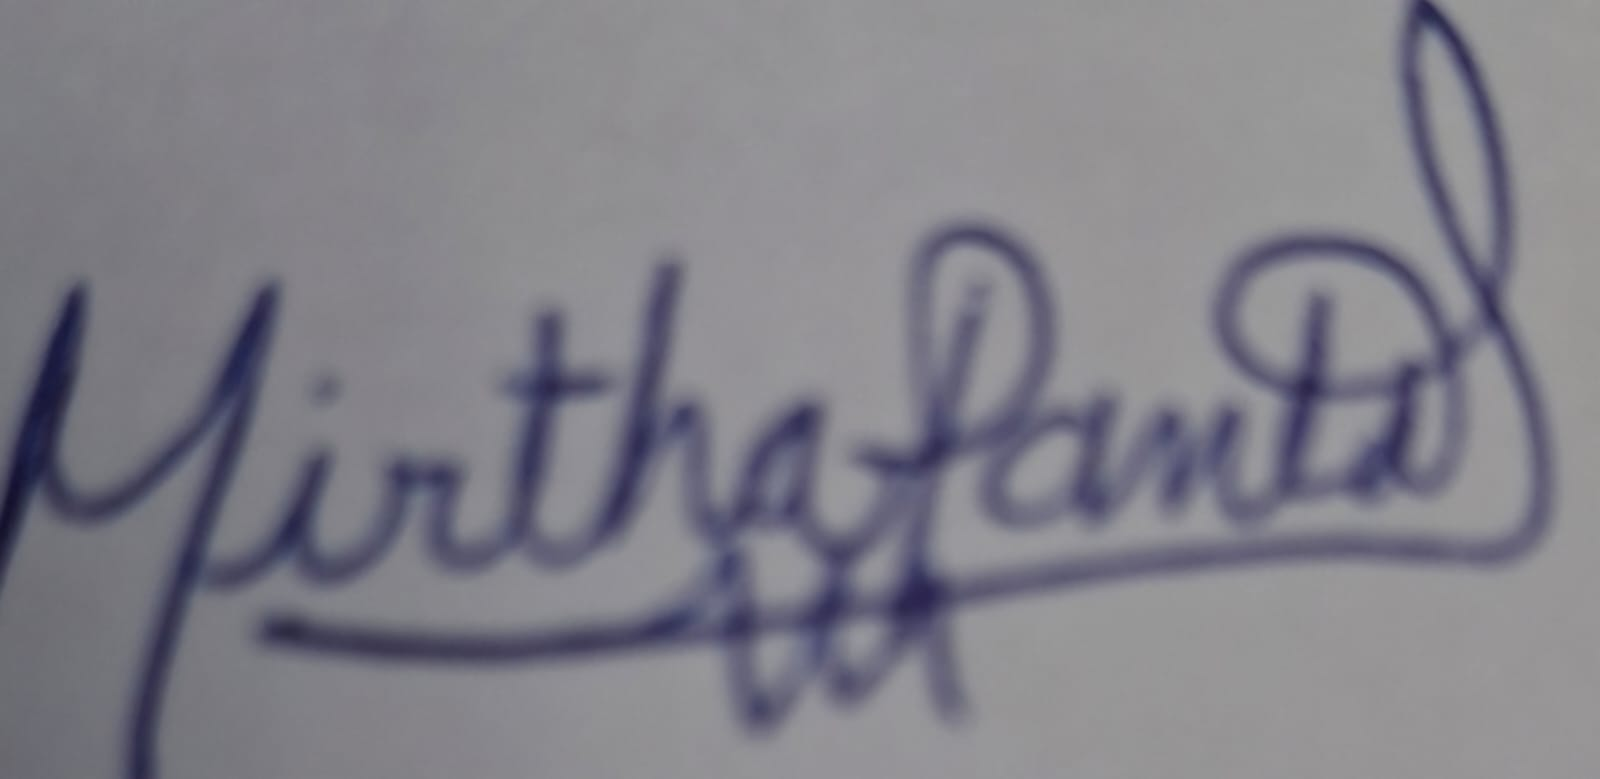 Mirtha Panta